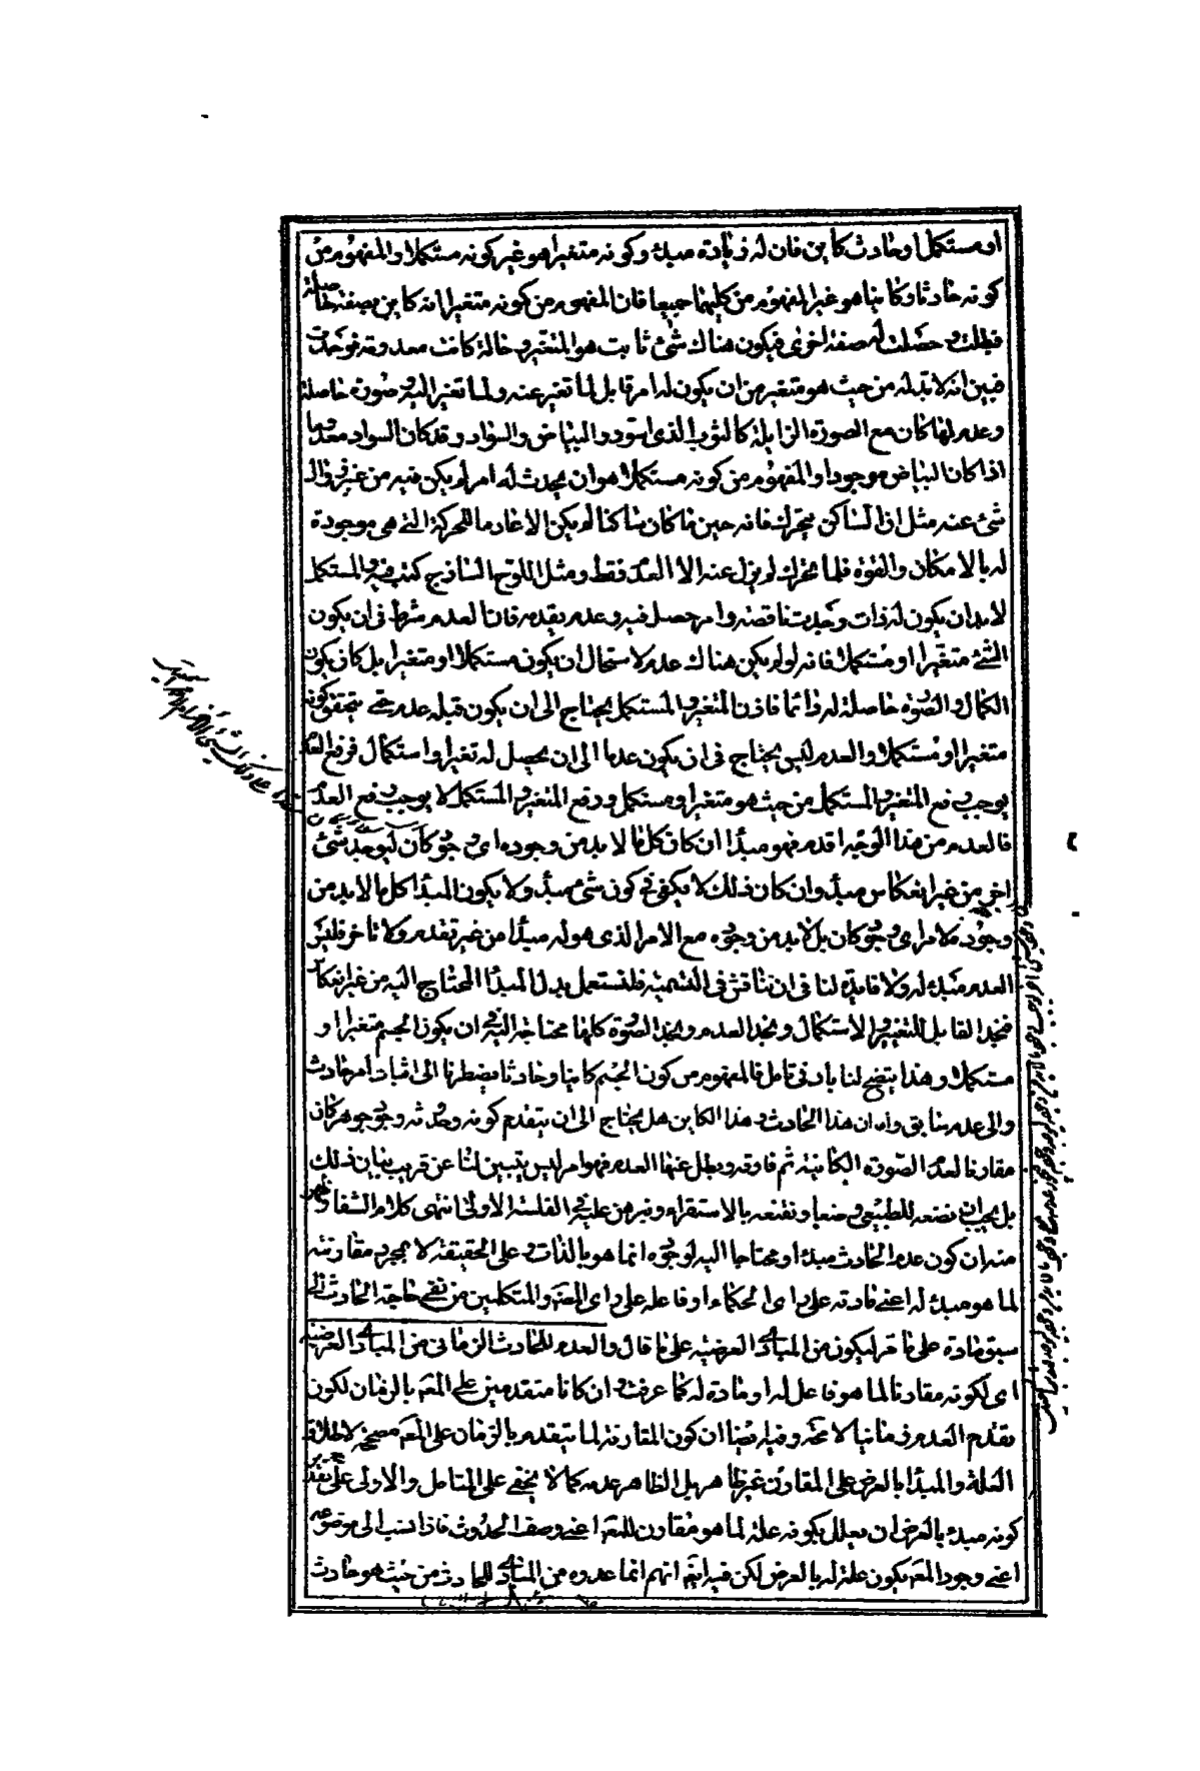 او مستكمل او حادث كاين فان له زيادة مبدأ و كونه متغيرا هو غير كونه مستكملا و المفهوم من
كونه حادثا و كاينا هو غير المفهوم من كليهما جميعا فان المفهوم من كونه متغيرا انه كاين بصفة حاصلة
فبطلت و حصلت له صفة اخرى فيكون هناك شئ ثابت هو المتغير و حالة كانت معدومة فوجدت
فبين انه لابد له من حيث هو متغير من ان يكون له امر قابل لما تغير عنه و لما تغير اليه و صورة حاصلة
و عدم لها كان مع الصورة الزايلة كالثوب الذى اسود و البياض و السواد و قد كان السواد معدوما
اذا كان البياض موجودا و المفهوم من كونه مستكملا هو ان يحدث له امر لم يكن فيه من غير زوال
شئ عنه مثل ان الساكن يتحرك فانه حين ما كان ساكنا لم يكن الا عادما للحركة التى هى موجودة
له بالامكان و القوة فلما تحرك لم يزل عنه الا العدم فقط و مثل اللوح الساذج كتب فيه و المستكمل
لابد ان يكون له ذات وجدت ناقصة و امر حصل فيه و عدم يقدمه فان العدم شرط فى ان يكون
الشئ متغيرا او مستكملا فانه لو لم يكن هناك عدم لاستحال ان يكون مستكملا او متغيرا بل كان يكون
الكمال و الصورة حاصلة له دائما فاذن المتغير و المستكمل يحتاج الى ان يكون قبله عدم حتى يتحقق كونه
متغيرا او مستكملا و العدم ليس يحتاج فى ان يكون عدما الى ان يحصل له تغير او استكمال فرفع العدم
يوجب رفع المتغير و المستكمل من حيث هو متغير و مستكمل و رفع المتغير و المستكمل لا يوجب رفع العدم
فالعدم من هذا الوجه اقدم فهو مبدأ ان كان كل ما لابد من وجوده اى وجود كان ليوجد شئ
اخر من غير انعكاس مبدأ و ان كان ذلك لا يكفى فى كون شئ مبدأ و لا يكون المبدأ كل ما لابد من
وجوده للامر اى وجود كان بل لابد من وجوده مع الامر الذى هو له مبدأ من غير تقدم و لا تأخر فليس
العدم مبدأ له و لا فايدة لنا فى ان نناقش فى التسمية فلنستعمل بدل المبدأ المحتاج اليه من غير انعكاس
فنجد القابل للتغير و الاستكمال و نجد العدم و نجد الصورة كلها محتاجة اليه فى ان يكون الجسم متغيرا او
مستكملا و هذا يتضح لنا بادنى تامل فالمفهوم من كون الجسم كاينا و حادثا يضطرنا الى اثبات امر حادث
و الى عدم سابق و اما ان هذا الحادث و هذا الكاين هل يحتاج الى ان يتقدم كونه و حدوثه وجود جوهر كان
مقارنا لعدم الصورة الكاينة ثم فارقه و بطل عنها العدم فهو امر ليس يتبين لنا عن قريب بيان ذلك
بل يجب ان نضعه للطبيعى وضعا و نقنعه بالاستقراء و نبرهن عليه فى الفلسفة الاولى انتهى كلام الشفا و ظهر
منه ان كون عدم الحادث مبدأ و محتاجا اليه لوجوده انما هو بالذات و على الحقيقة لا بمجرد مقارنته
لما هو مبدأ له اعنى مادته على راى الحكماء او فاعله على راى المصنف و المتكلمين من نفى حاجة الحادث الى
سبق مادة على ما مر ليكون من المبادى العرضية على ما قال و العدم للحادث الزمانى من المبادى العرضية
اى لكونه مقارنا لما هو فاعل له او مادة له كما عرفت و ان كانا متقدمين على المعلول بالزمان لكون
تقدم العدم زمانيا لا محة و فيه ايضا ان كون المقارنة لما يتقدم بالزمان على المعلول مصححة لاطلاق
العلة و المبدأ بالعرض على المقارن غير ظاهر بل الظاهر عدمه كما لا يخفى على المتامل و الاولى على تقدير
كونه مبدأ بالعرض ان يعلل بكونه علة لما هو مقارن للمعلول اعنى وصف الحدوث فاذا نسب الى موضوعه
اعنى وجود المعلول يكون علة له بالعرض لكن فيه ايضا انهم انما عدوه من المبادى للحادث من حيث هو حادث